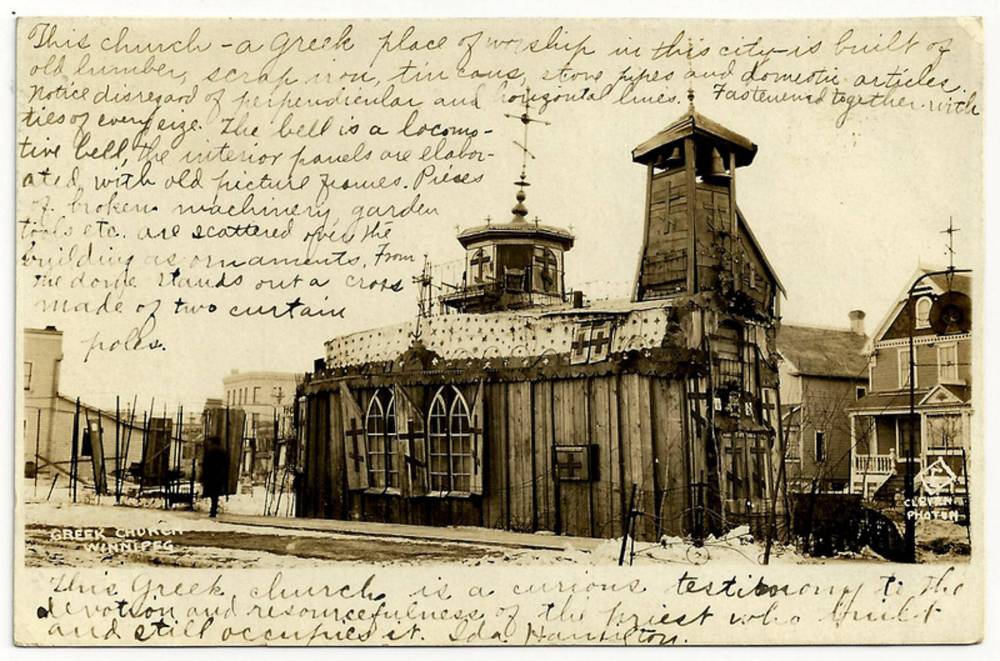 This church - a Greek place of worship in this city - is built of
old lumber, scrap iron, tin cans, stove pipes and domestic articles.
Notice disregard of perpendicular and horizontal lines. Fastenened together with
ties of every size. The bell is a locomo-
tive bell, the interior panels are elabor-
ated with old picture frames. Pieces
of broken machinery, garden
tools etc. are scattered over the
building as ornaments. From
the dome stands out a cross
made of two curtain
poles.
GREEK CHURCH
WINNIPEG
PHOTO
This Greek church is a curious testimony to the
devotion and resourcefulness of the priest who built
and still occupies it. Ida Hamilton.